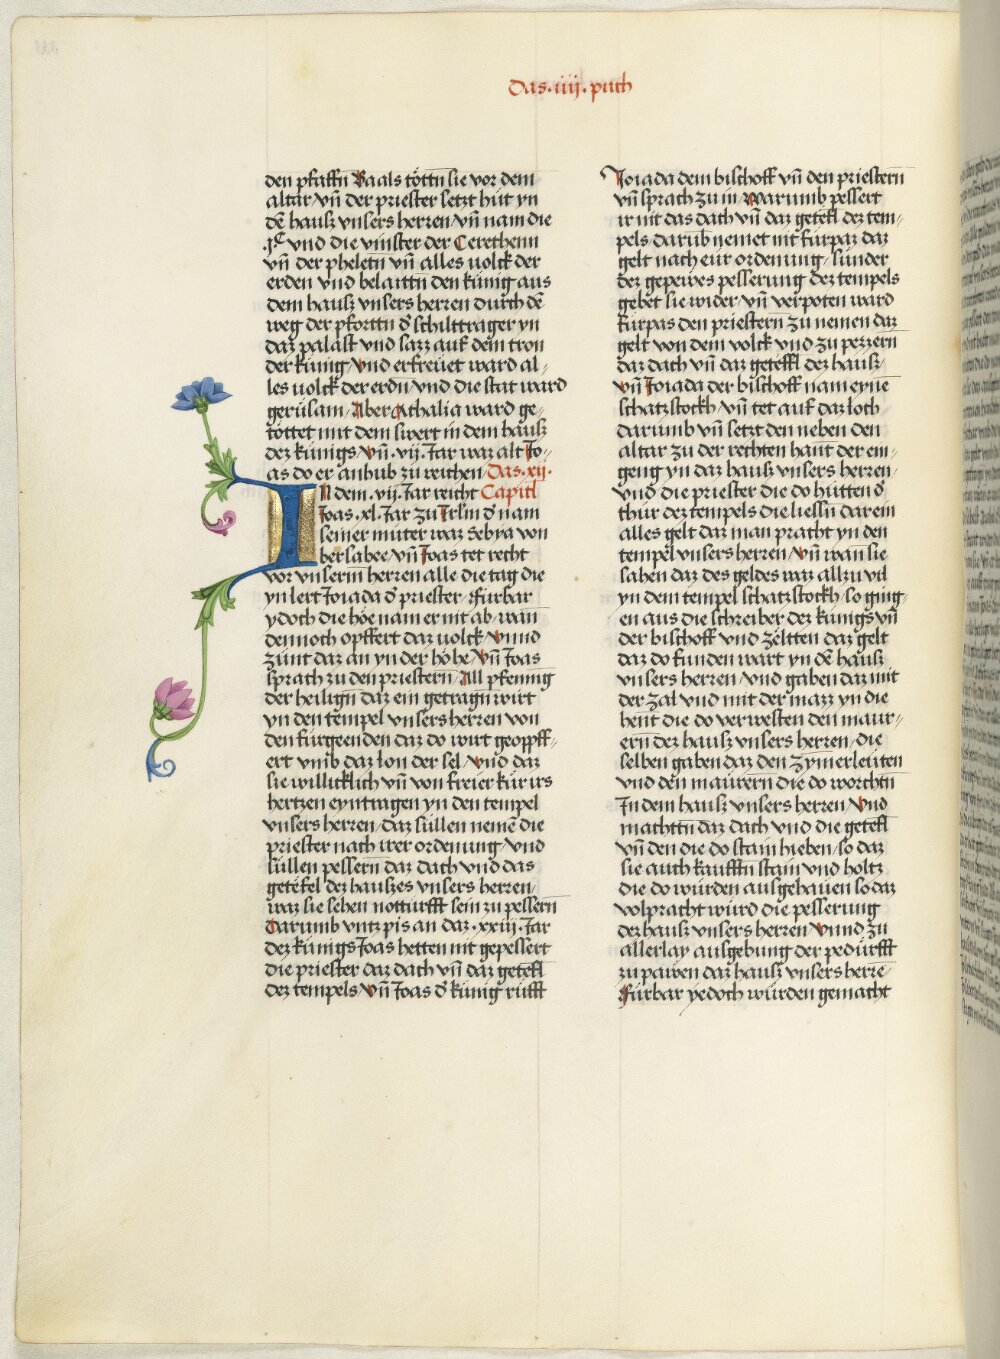 Das·iiij·puch
den pfaffn Baals töttn sie vor dem
altar vn̄ der priester setzt hut yn
dē hausz vnsers herren vn̄ nam die
·jc vnd die vinster der Cerethenn
vn̄ der pheletn vn̄ alles volck der
erden vnd belaittn den künig aus
dem hausz vnsers herren durch dē
weg der pforttn d' schilttrager yn
daz palast vnd sazz auf dem tron
der künig/vnd erfreuet ward al/
les volck der erdn vnd die stat ward
gerusam/Aber Athalia ward ge/
töttet mit dem swert in dem hausz
dez künigs/vn̄·vij·Jar waz alt Jo/
as do er anhub zu reichen/Das·xij·
IN dem·vij·Jar reicht Capitl
Joas·xl·Jar zu Jrl̄m d' nam
seiner muter waz Sebya von
bersabee/vn̄ Joas tet recht
vor vnserm herren alle die tag die
yn lert Joiada d' priester/Fürbar
ydoch die höe nam er nit ab/wan
dennoch opffert daz volck/vnnd
zünt daz an yn der höhe/vn̄ Joas
sprach zu den priestern/All pfennig
der heilign daz ein getragn wirt
yn den tempel vnsers herren von
den fürgeenden daz do wirt geopff/
ert vmb daz lon der sel/vnd daz
sie willicklich vn̄ von freier kür irs
hertzen eyntragen yn den tempel
vnsers herren/daz süllen nemē die
priester nach irer ordenung/vnd
süllen pessern daz dach vnd das
getefel dez hauszes vnsers herren/
waz sie sehen notturfft sein zu pessern
Darumb vntz pis an daz·xxiij·Jar
dez künigs Joas hetten nit gepessert
die priester daz dach vn̄ daz getefl
dez tempels/vn̄ Joas d' künig rüfft
Joiada dem bischoff vn̄ den priestern
vn̄ sprach zu in/Warumb pessert
ir nit das dach vn̄ daz getefl dez tem/
pels/darūb nemet nit fürpaz daz
gelt nach eur ordenung/sunder
dez gepewes pesserung dez tempels
gebet sie wider/vn̄ verpoten ward
fürpas den priestern zu nemen daz
gelt von dem volck vnd zu pezzern
daz dach vn̄ daz geteffl dez hausz/
vn̄ Joiada der bischoff nam eyne
schatzstockh vn̄ tet auf daz loch
darumb vn̄ setzt den neben den
altar zu der rechten hant der ein/
geng yn daz hausz vnsers herren/
vnd die priester die do hutten d'
thür dez tempels die liessn̄ darein
alles gelt daz man pracht yn den
tempel vnsers herren/vn̄ wan sie
sahen daz des geldes waz allzu vil
yn dem tempel schatzstockh/so ging/
en aus die schreiber dez künigs vn̄
der bischoff vnd zeltten daz gelt
daz do funden wart yn dē hausz
vnsers herren/vnd gaben daz mit
der zal vnd mit der mazz yn die
hent die do verwesten den maur/
ern dez hausz vnsers herren/die
selben gaben daz den zymerleüten
vnd den maurern die do worchtn
Jn dem hausz vnsers herren/vnd
machttn daz dach vnd die getefl
vn̄ den die do stain hieben/so daz
sie auch kaufftn stain vnd holtz
die do würden ausgehauen so daz
volpracht würd die pesserung
dez hausz vnsers herren/vnnd zu
allerlay ausgebung der pedürfft
zu pawen daz hausz vnsers herrē/
Fürbar yedoch würden gemacht